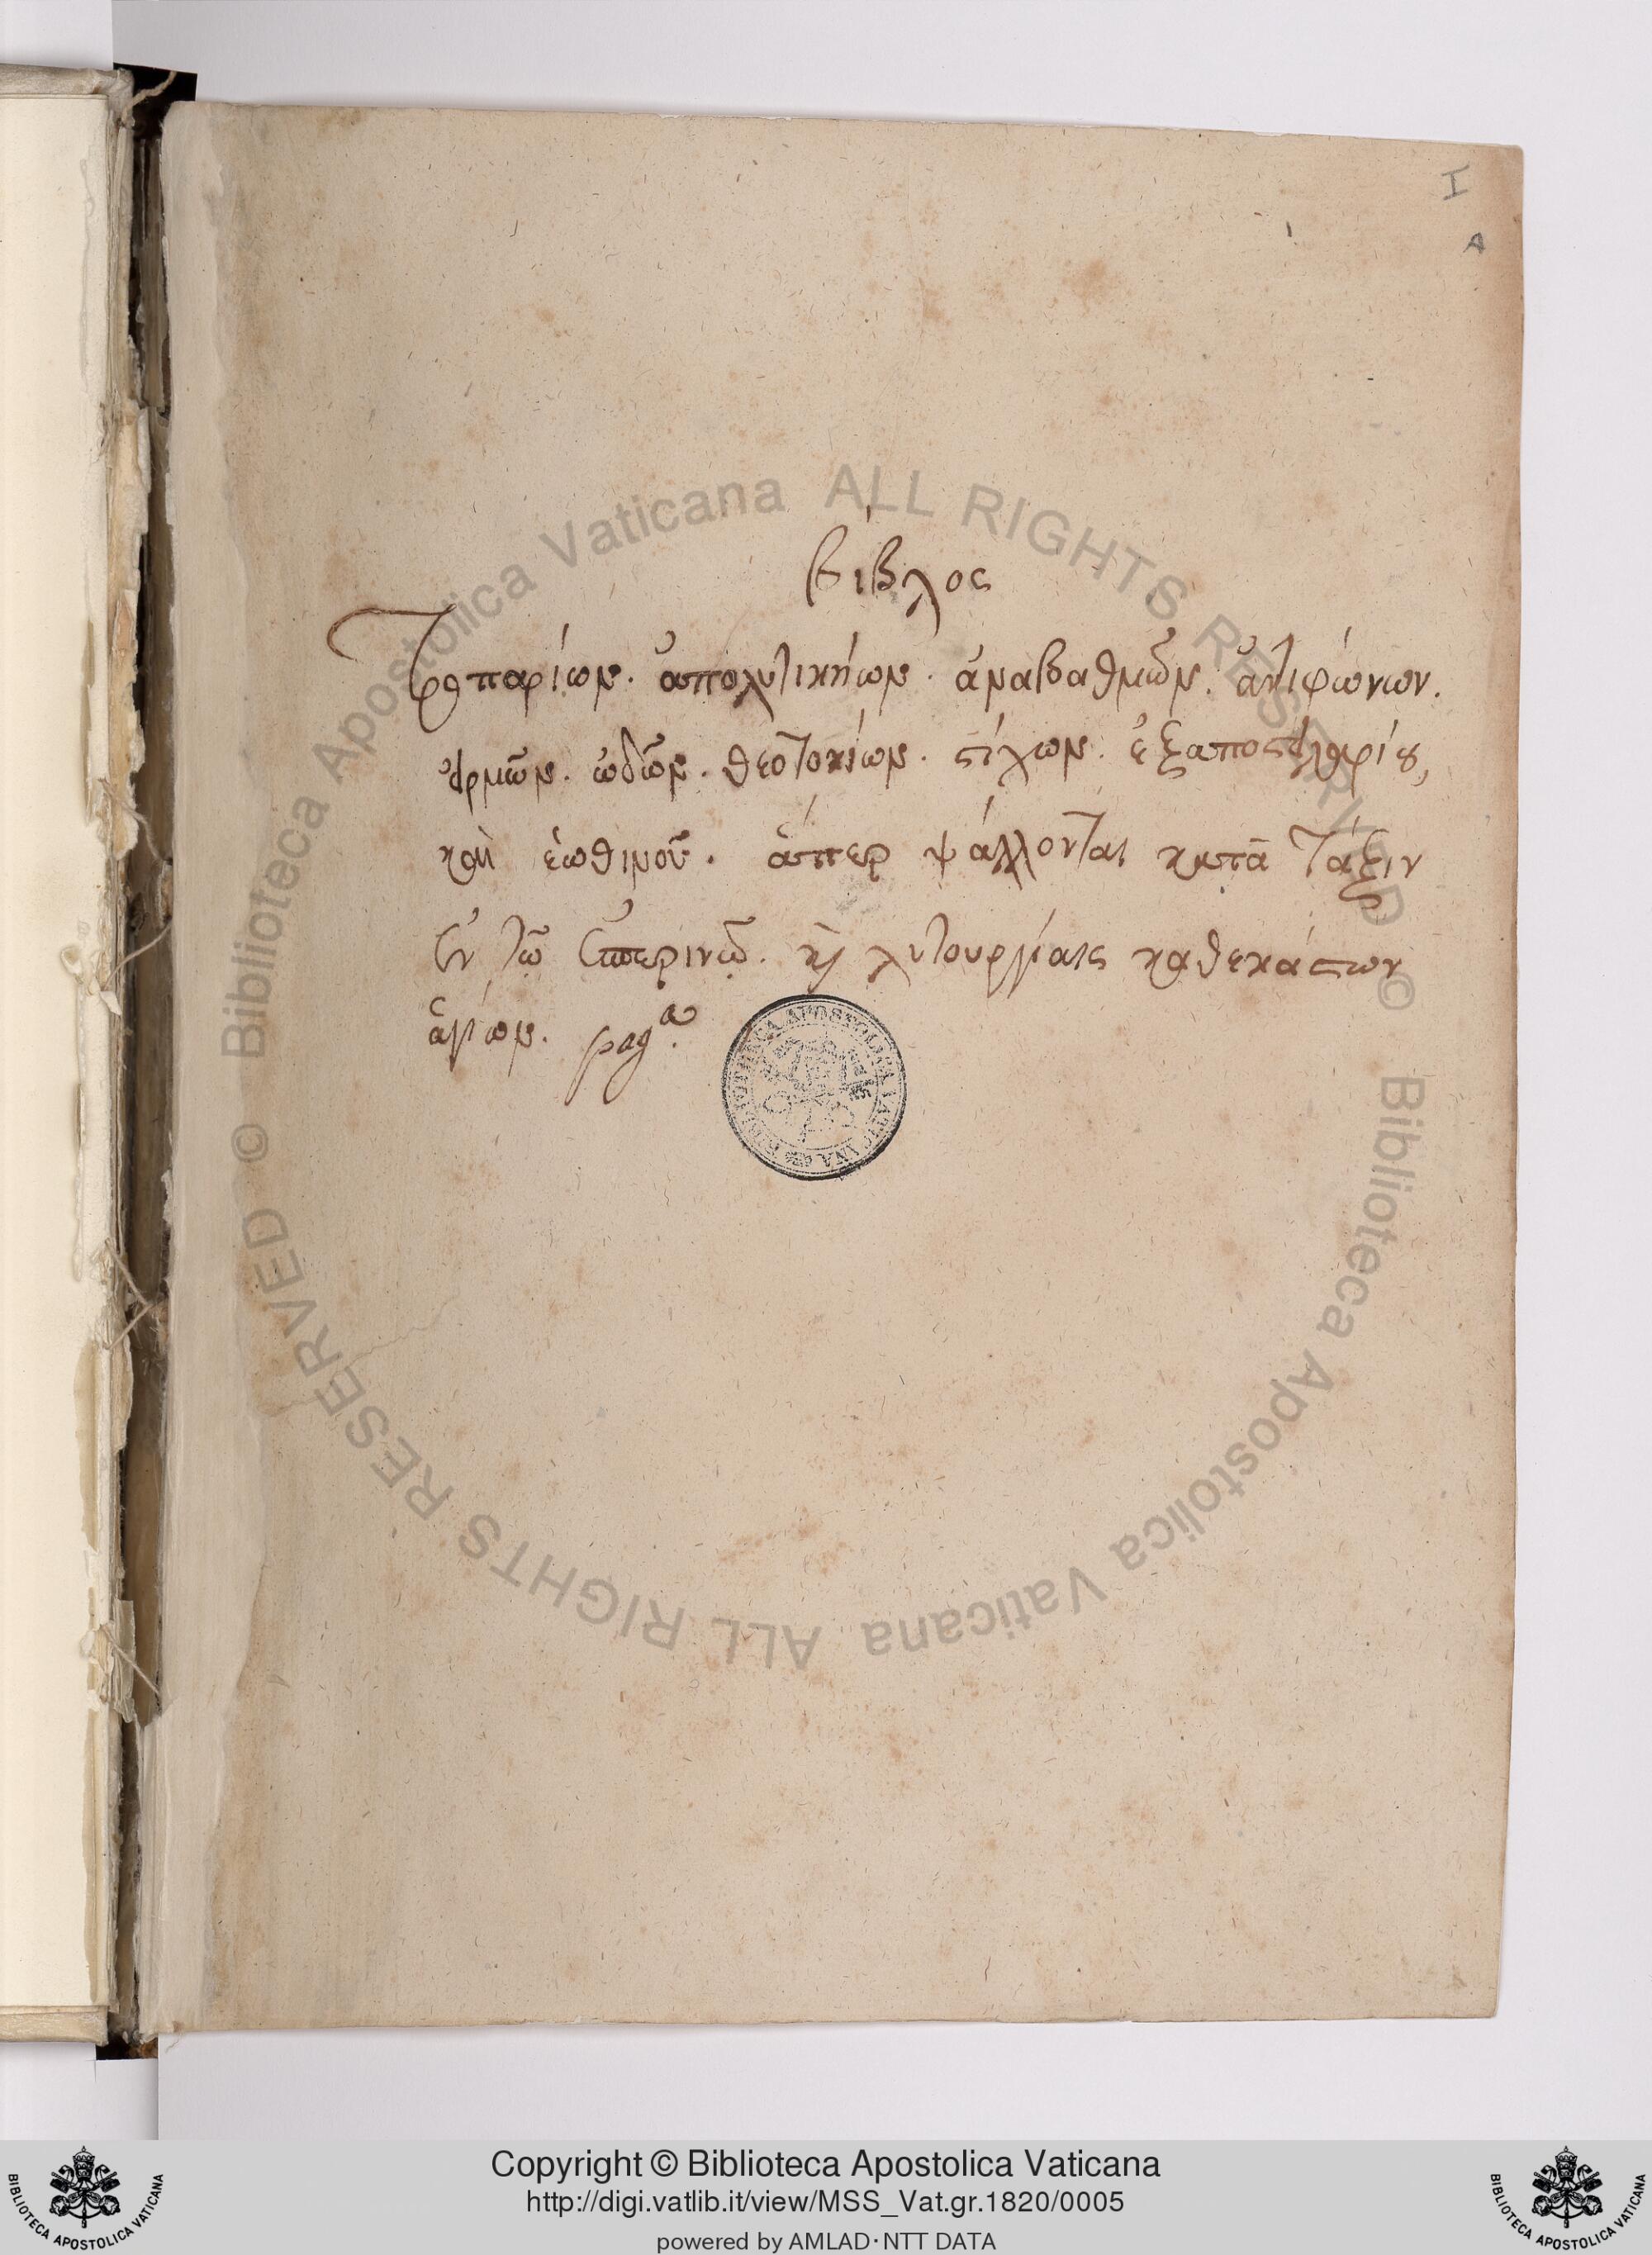 I
A
βίβλος
Τροπαρίων. ἀπολυτικήων. ἀναβαθμῶν. ἀντιφώνων.
εἱρμῶν. ὠδῶν. θεοτοκίων. στίχων. ἐξαποστειλαρίου,
καὶ ἑωθινοῦ. ἅπερ ψάλλονται κατὰ τάξιν
ἐν τῶ ἑσπερινῶ. καὶ λυτουργίαις καθεκάστων
ἁγίων. pag.ᵃ
Biblioteca Apostolica Vaticana ALL RIGHTS RESERVED ©
Biblioteca Apostolica Vaticana ALL RIGHTS RESERVED ©
Copyright © Biblioteca Apostolica Vaticana
http://digi.vatlib.it/view/MSS_Vat.gr.1820/0005
powered by AMLAD·NTT DATA
BIBLIOTECA APOSTOLICA VATICANA
BIBLIOTECA APOSTOLICA VATICANA